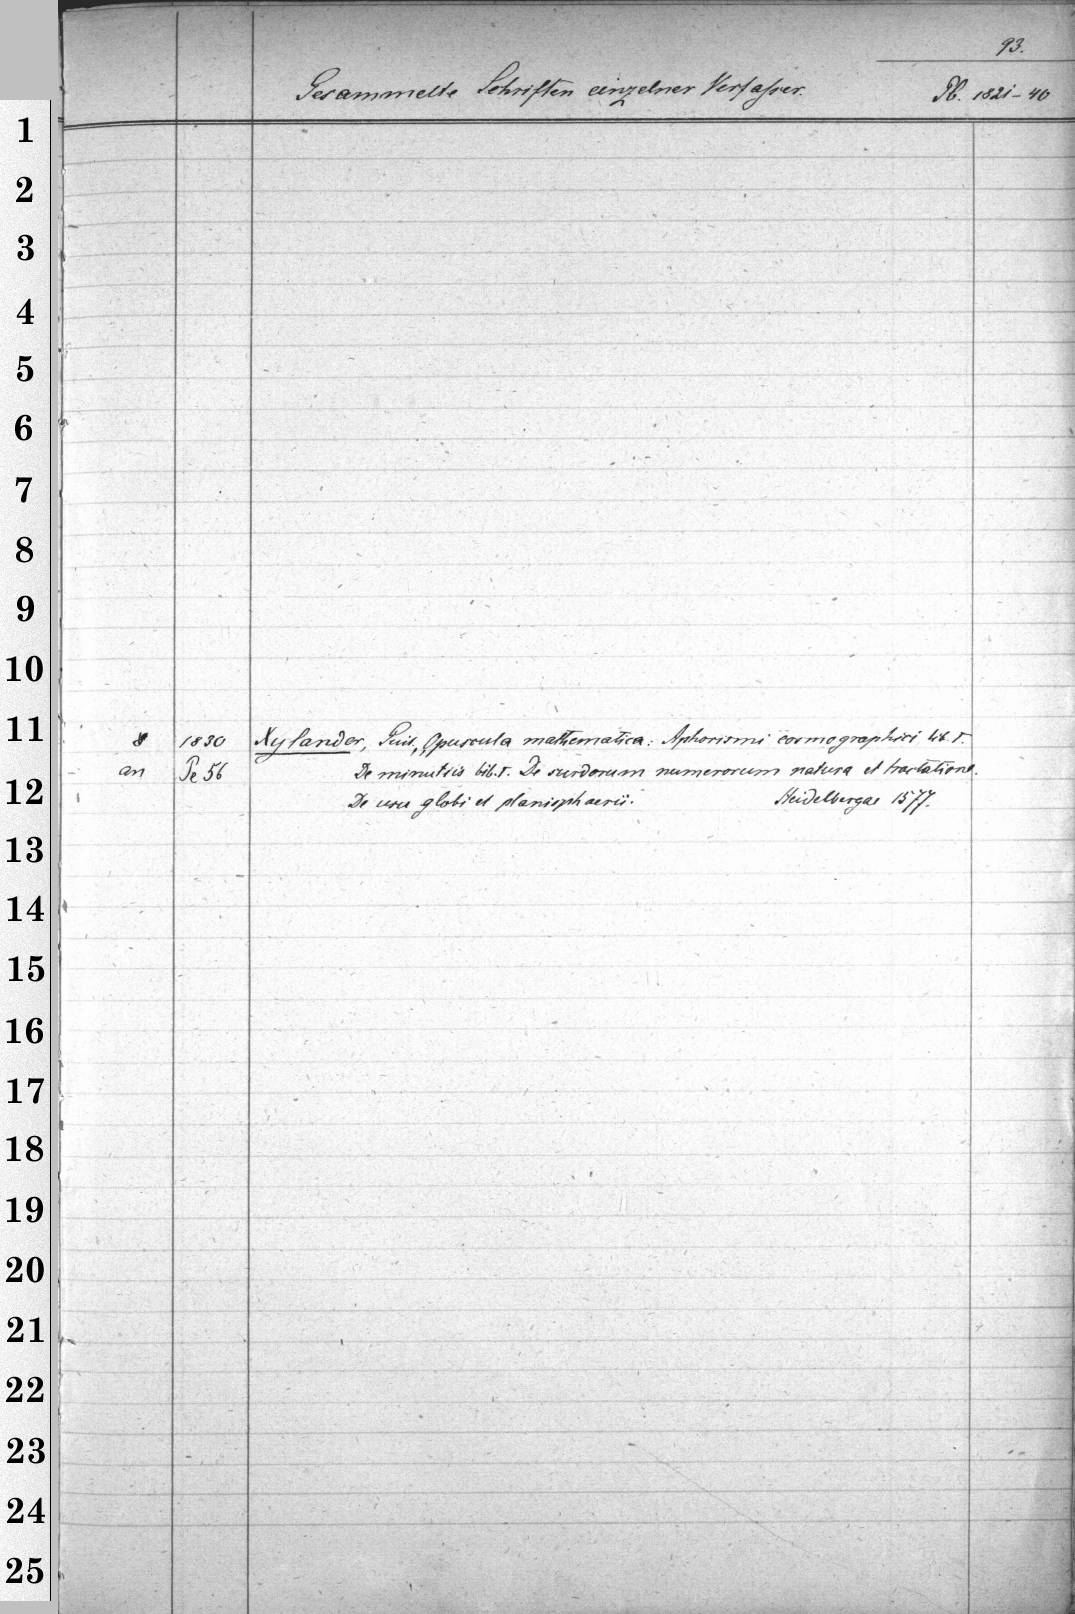 93.
Gesammelte Schriften einzelner Verfasser. Pb. 1821-40
1
2
3
4
5
6
7
8
9
10
11
8 1830 Xylander, Guil., Opuscula mathematica: Aphorismi cosmographici lib. I.
an Pe 56 De minutiis lib. I. De surdorum numerorum natura et tractatione.
12
De usu globi et planisphaerii. Heidelbergae 1577.
13
14
15
16
17
18
19
20
21
22
23
24
25